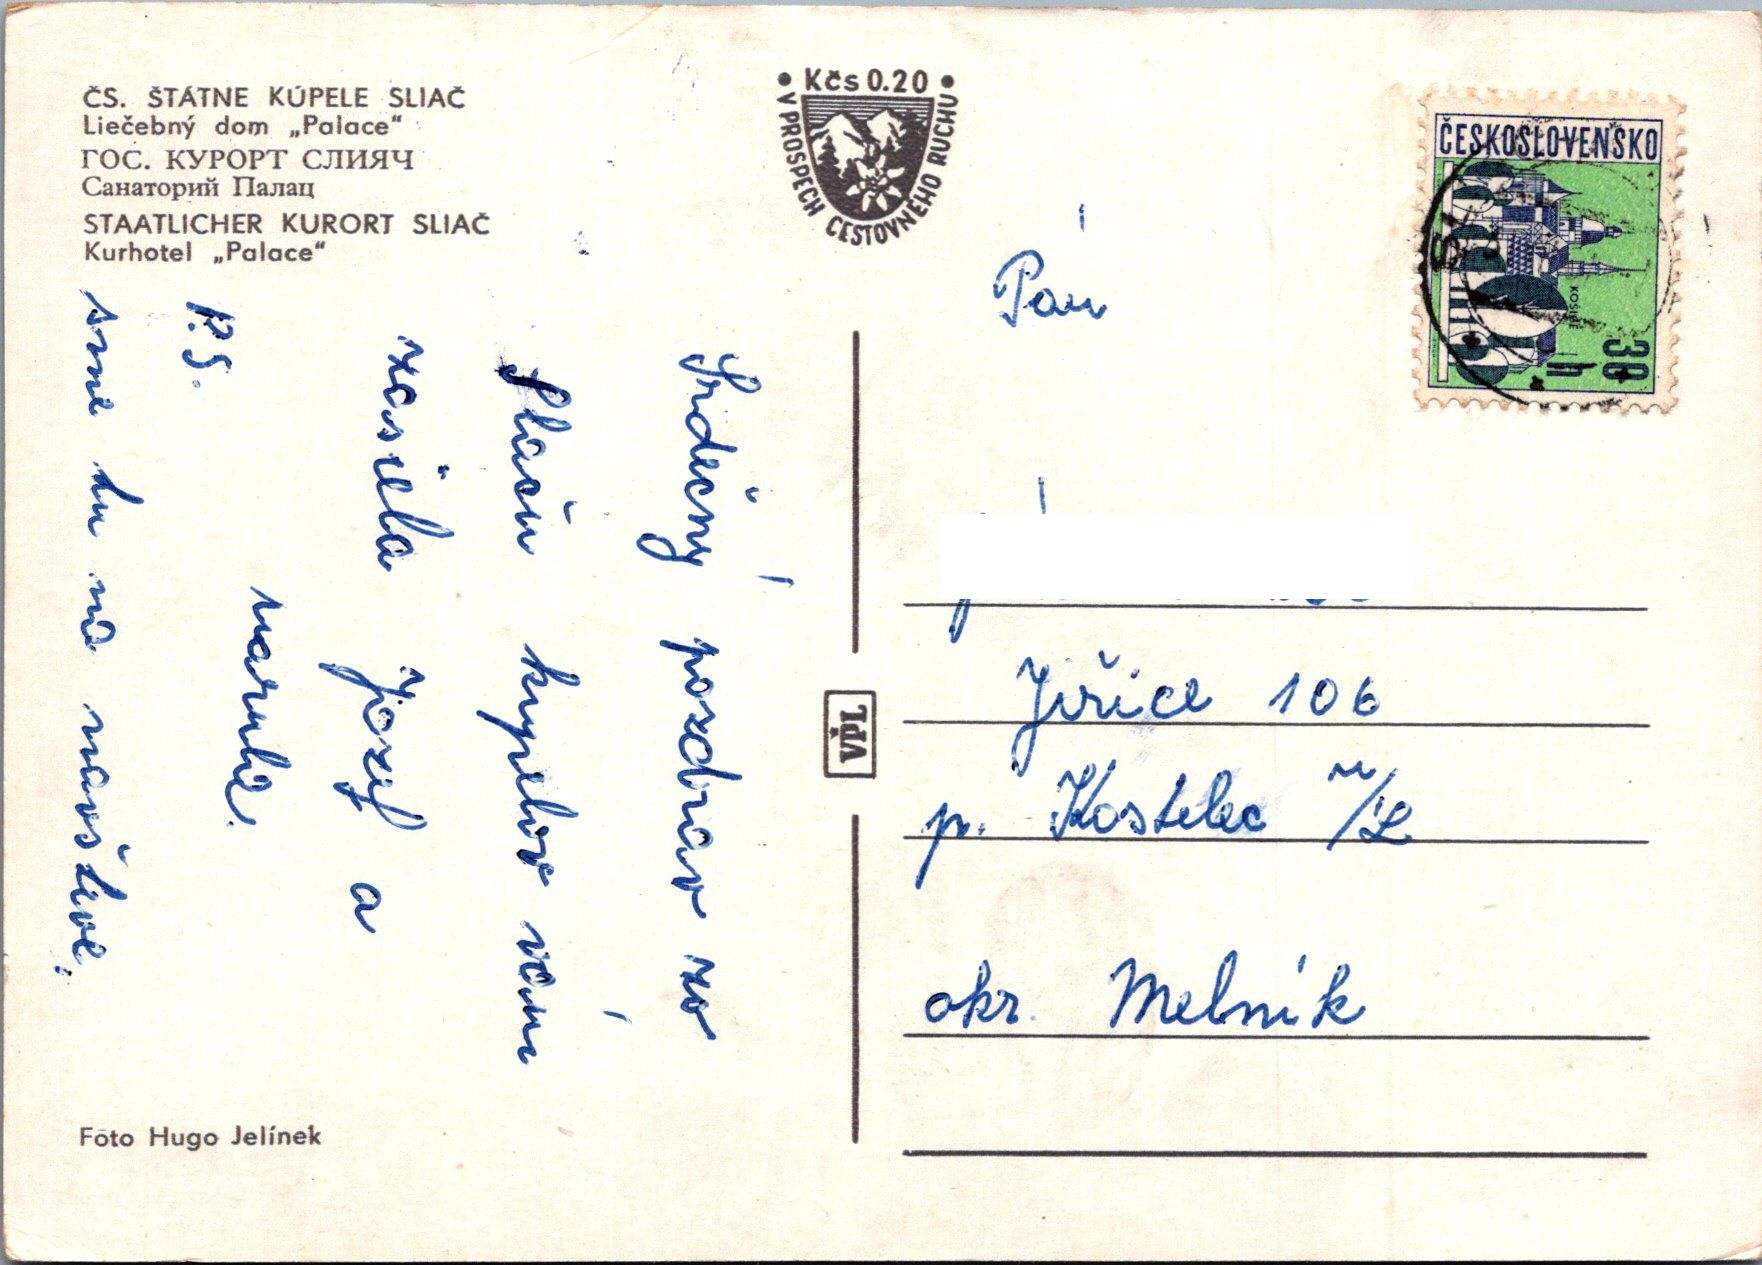 ČS. ŠTÁTNE KÚPELE SLIAČ
Liečebný dom „Palace“
ГОС. КУРОРТ СЛИЯЧ
Санаторий Палац
STAATLICHER KURORT SLIAČ
Kurhotel „Palace“
• Kčs 0.20 •
V PROSPECH CESTOVNÉHO RUCHU
ČESKOSLOVENSKO
KOŠICE
30 h
Srdečný pozdrav zo
Sliači kupelov vám
zasiela Jozef a
Maruša.
P.S.
sme tu na navšteve.
VPL
Pán
Jiřice 106
p. Kostelec n/L
okr. Melník
Foto Hugo Jelínek